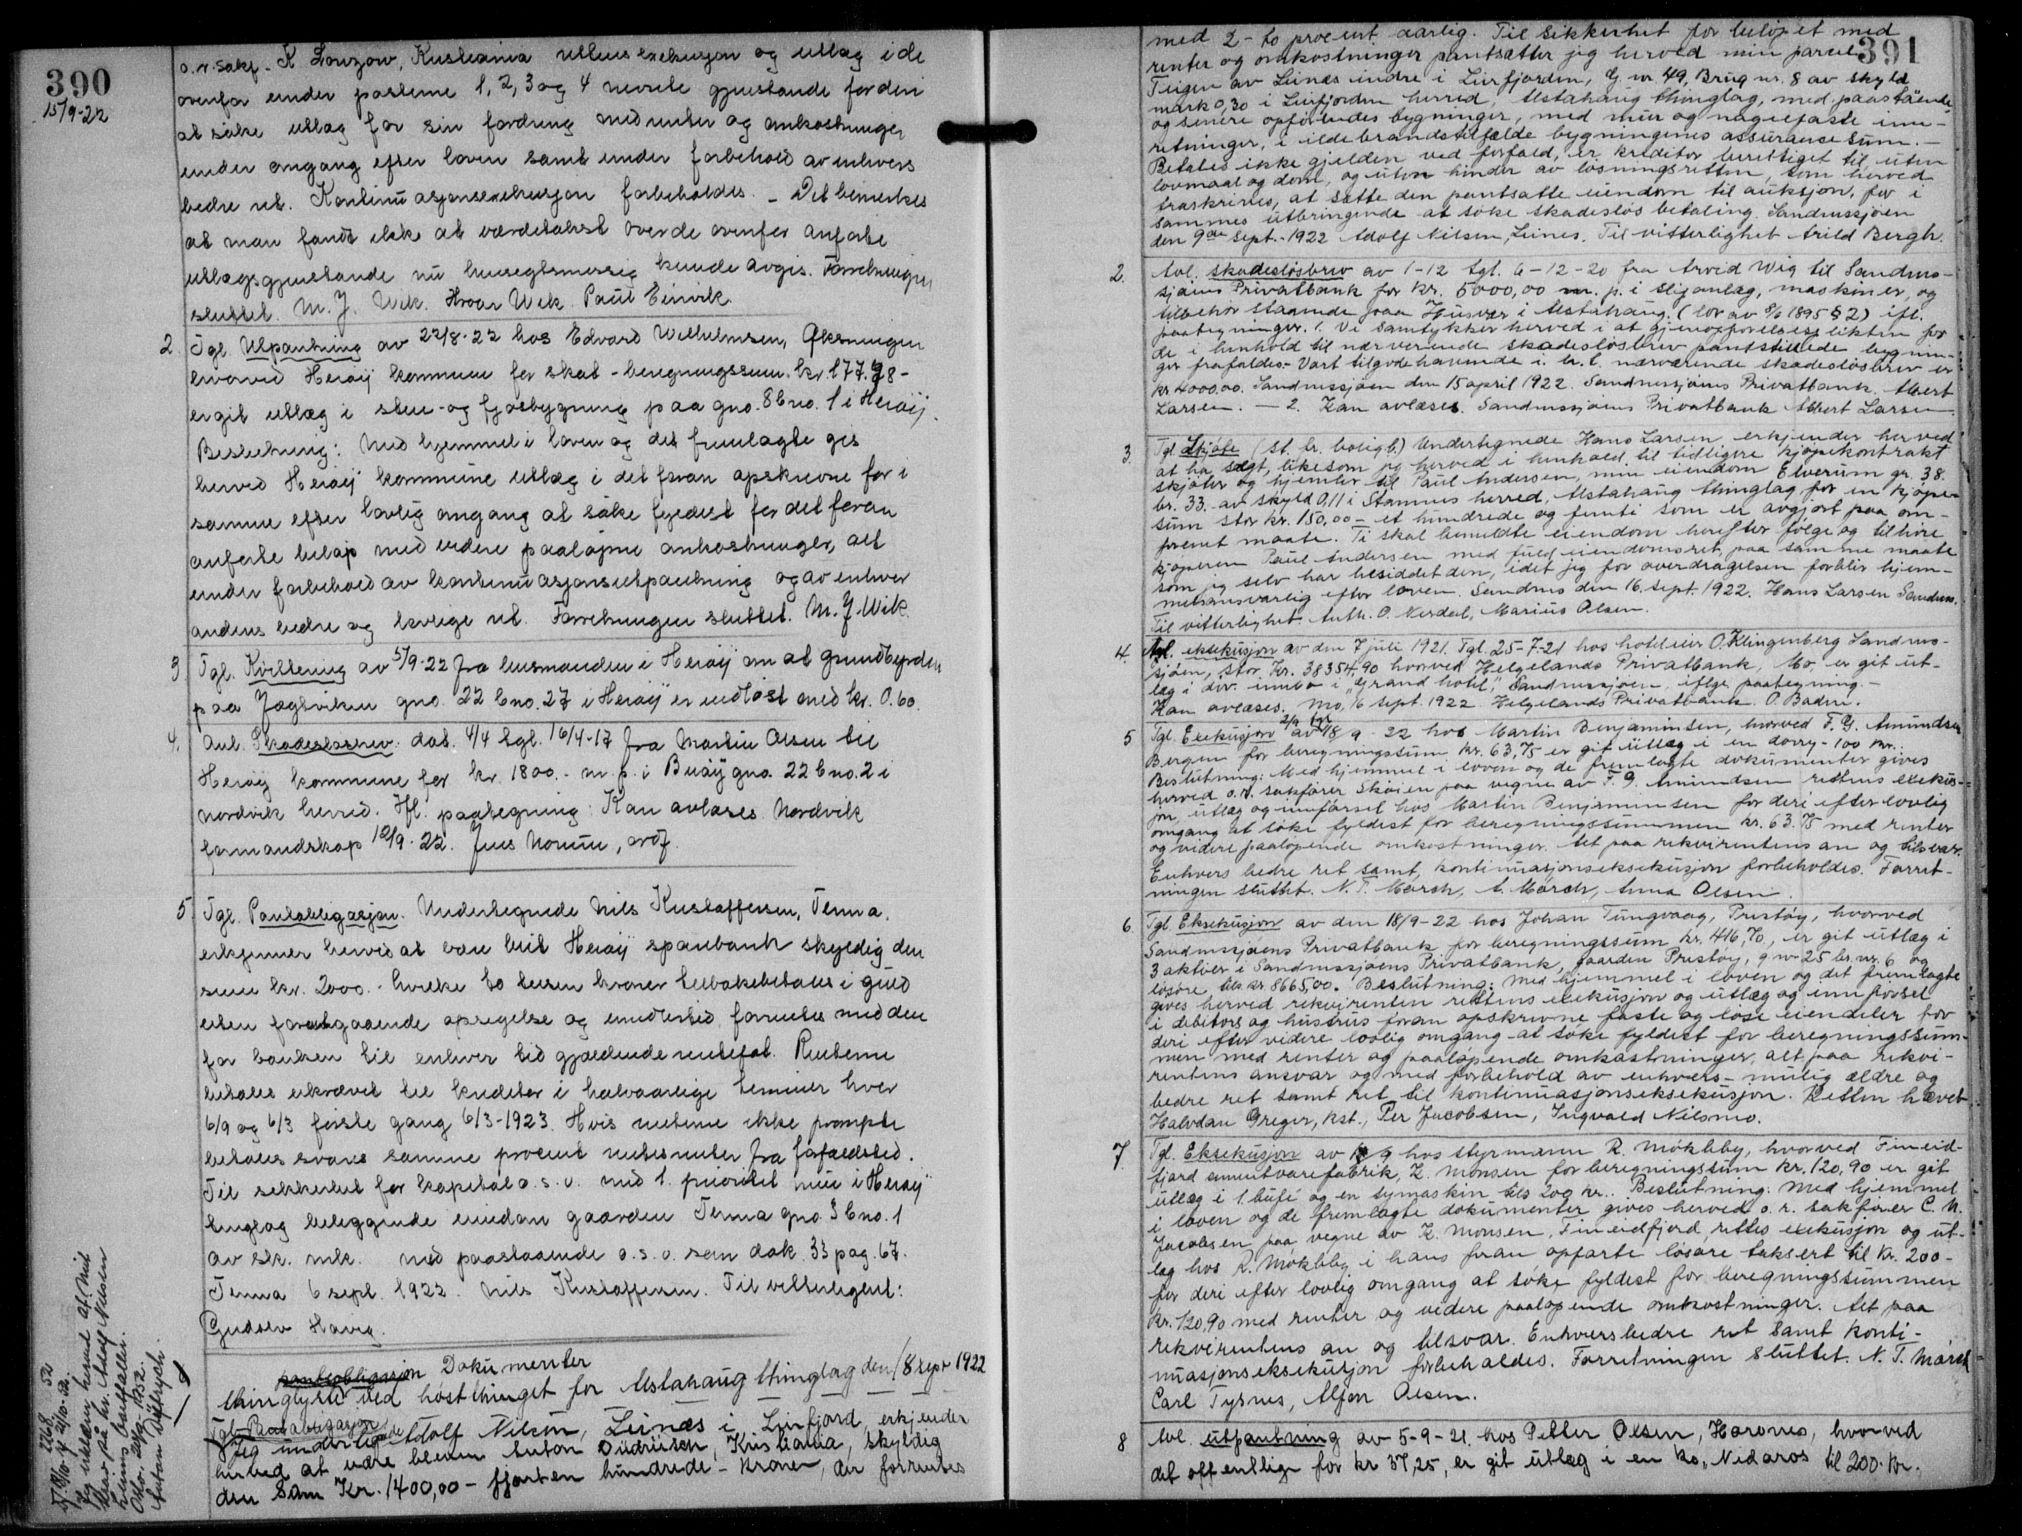 390
15/9-22
o.r.sakf. K Lowzow, Kristiania rettens exekusjon og utlæg i de
ovenfor under posterne 1, 2, 3 og 4 nevnte gjenstande for deri
at søke utlæg for sin fordring med renter og omkostninger
under omgang efter loven samt under forbehold av enhvers
bedre ret. Kontinuasjonsexekusjon forbeholdes. - Det bemerkes
at man fandt ikke at værditakst over de ovenfor anførte
utlægsgjenstande nu hensigtsmessig kunde avgis. Forretningen
sluttet. M. J. Wik. Hroar Wik. Paul Einvik
2. Tgl. Utpantning av 22/8-22 hos Edvard Wilhelmsen, Øksningen
hvorved Herøiÿ kommune for skat - beregningssum kr. 177.98 -
er git utlæg i stue- og fjøsbygning paa gno. 8 bno. 1 i Herøiÿ.
Beslutning: Med hjemmel i loven og det fremlagte gis
herved Herøiÿ kommune utlæg i det foran opskrevne for i
samme efter lovlig omgang at søke fyldest for det foran
anførte beløp med videre paaløpne omkostninger, alt
under forbehold av kontinuasjonsutpantning og av enhver
andens bedre og lovlige ret. Forretningen sluttet. M. J. Wik
3. Tgl. Kvittering av 5/9-22 fra lensmanden i Herøiÿ om at grundbyrden
paa Jægtviken gno. 22 bno. 27 i Herøiÿ er indløst med kr. 0.60.
4. Avl. Skadesløsbrev dat. 4/4 tgl. 16/4-17 fra Martin Olsen til
Herøiÿ kommune for kr. 1800.- m. p. i Buøiÿ gno. 22 bno. 2 i
Nordvik herred. Ifl. paategning: Kan avlæses Nordvik
formandskap 12/9-22. Jens Norum, ordf.
5. Tgl. Pantobligasjon. Undertegnede Nils Kristoffersen, Tenna,
erkjenner herved at være blit Herøiÿ sparebank skyldig den
sum kr. 2000.- hvilke to tusen kroner tilbakebetales i guld
uten forutgaaende opsigelse og imidlertid forrentes med den
for banken til enhver tid gjældende rentefot. Renterne
betales ukrævet til kreditor i halvaarlige terminer hver
6/9 og 6/3 første gang 6/3-1923. Hvis renterne ikke prompte
betales svares samme procent rentesrenter fra forfaldstid.
Til sikkerhet for kapital o. s. v. med 1. prioritet min i Herøiÿ
tinglag beliggende eiendom gaarden Tenna gno. 3 bno. 1
av sk. mk. med paastaaende o. s. v. som dok. 33 pag. 67.
Tenna 6 sept. 1922. Nils Kristoffersen. Til vitterlighet:
Gudolv Havig.
pantobligasjon Dokumenter
thinglyste ved høstthinget for Alstahaug thinglag den 18 sept 1922
Tgl. Pantobligasjon
Jeg undertegnede Adolf Nilsen, Leines i Leirfjord, erkjender
herved at være bleven Anton Didriksen, Kristiania, skyldig
den Sum Kr. 1400,00 - fjorten hundrede - Kroner, der forrentes
391
med 2 - to procent aarlig. Til sikkerhet for beløpet med
renter og omkostninger pantsætter jeg herved min parcel
Teigen av Leines indre i Leirfjorden, G. nr. 49, Brug nr. 8 av skyld
mark 0,30 i Leirfjorden herred, Alstahaug thinglag, med paastående
og senere opførendes bygninger, med mur og naglefaste ind-
retninger, i ildebrandstilfælde bygningenes assurance sum. -
Betales ikke gjelden ved forfald, er kreditor berettiget til, uten
lovmaal og dom, og uten hinder av løsningsretten, som herved
fraskrives, at sætte den pantsatte eiendom til auksjon, for i
sammes utbringende at søke skadesløs betaling. Sandnessjøen
den 9de sept. 1922 Adolf Nilsen, Leines. Til vitterlighet Arild Bergh.
2. Avl. skadesløsbrev av 1-12 tgl. 6-12-20 fra Arvid Wig til Sandnes-
sjøens Privatbank for Kr. 5000,00 m. p. i slipanlæg, maskiner, og
tilbehør staaende paa Husvær i Alstahaug. (lov av 8/6 1895 § 2) ifl.
paategninger. 1. Vi samtykker herved i at gjenopførelsespligten for
de i henhold til nærværende skadesløsbrev pantstillede bygnin-
ger frafaldes. Vart tilgodehavende i h. t. nærværende skadesløsbrev er
kr 4000.00. Sandnessjøen den 15 april 1922. Sandnessjøens Privatbank. Albert
Larsen. - 2. Kan avlæses. Sandnessjøens Privatbank Albert Larsen.
3. Tgl. Skjøte (st. fr. boligb.) Undertegnede Hans Larsen erkjender herved
at ha solgt, likesom jeg herved i henhold til tidligere kjøpekontrakt
skjøter og hjemler til Paul Andersen, min eiendom Elverum gr. 38.
br. 33. av skyld 0,11 i Stamnes herred, Alstahaug thinglag for en kjøpe-
sum stor kr. 150,00 - et hundrede og femti som er avgjort paa om-
forenet maate. Ti skal bemeldte eiendom herefter følge og tilhøre
kjøperen Paul Andersen med fuld eiendomsret, paa samme maate
som jeg selv har besiddet den, idet jeg for overdragelsen forblir hjem-
melsansvarlig efter loven. Sandnes den 16. sept. 1922. Hans Larsen Sandnes.
Til vitterlighet Anth. O. Nerdal, Marius Olsen.
4. Avl. eksekusjon av den 7 juli 1921. Tgl. 25-7-21 hos hotteleier O. Klingenberg Sandnes-
sjøen, stor Kr. 38354,90 hvorved Helgelands Privatbank, Mo, er git ut-
læg i div. innbo i "Grand hotel", Sandnessjøen, iflge paategning. -
Kan avlæses. Mo, 16 sept. 1922 Helgelands Privatbank. O. Baden.
5 Tgl. Exekusjon av 18/9-22 hos Martin Benjaminsen, hvorved F. G. Amundsen
Bergen for beregningssum kr. 63,75 er git utlæg i en dorry - 100 Kr..
Beslutning: Med hjemmel i loven og de fremlagte dokumenter gives
herved o.r. sakfører Skåien paa vegne av F. G. Amundsen rettens exekus-
jon, utlæg og innførsel hos Martin Benjaminsen for deri efter lovlig
omgang at søke fyldest for beregningssummen kr. 63.75 med renter
og videre paaløpende omkostninger. Alt paa rekvirentens an og tilsvar.
Enhvers bedre ret samt kontinuasjonseksekusjon forbeholdes. Forret-
ningen sluttet. N. T. Mørch, A. Mørch, Anna Olsen.
6. Tgl. Eksekusjon av den 18/9-22 hos Johan Tungvaag, Prestøy, hvorved
Sandnessjøens Privatbank for beregningssum kr. 416,70, er git utlæg i
3 aktier i Sandnessjøens Privatbank, gaarden Prestøy, g nr 25 br. nr. 6 og
løsøre tils kr 8665,00. Beslutning: Med hjemmel i loven og det fremlagte
gives herved rekvirenten rettens exekusjon og utlæg og innførsel
i debitors og hustrus foran opskrivne faste og løse eiendeler for
deri efter videre lovlig omgang at søke fyldest for beregningssum-
men med renter og paaløpende omkostninger, alt paa rekvi-
rentens ansvar og med forbehold av enhvers mulig ældre og
bedre ret samt ret til kontinuasjonseksekusjon. Retten hævet
Halvdan Greger, kst., Per Jacobsen, Ingvald Nilsmo.
7. Tgl. Eksekusjon av 9 hos styrmann R. Møkleby, hvorved Fineid-
fjord sementvarefabrik, K. Monsen for beregningssum kr. 120,90 er git
utlæg i 1 bufé og en symaskin tils 200 kr.. Beslutning: Med hjemmel
i loven og de fremlagte dokumenter gives herved o. r. sakfører C. M.
Jacobsen paa vegne av K. Monsen, Fineidfjord, rettes exekusjon og ut-
læg hos R. Møkleby i hans foran opførte løsøre taksert til kr. 200-
for deri efter lovlig omgang at søke fyldest for beregningssummen
Kr. 120,90 med renter og videre paaløpende omkostninger. Alt paa
rekvirentens an og tilsvar. Enhvers bedre ret samt konti-
nuasjonseksekusjon forbeholdes. Forretningen sluttet. N. T. Mørch
Carl Tysnes, Alfon Olsen.
8 Avl. utpantning av 5-9-21 hos Petter Olsen, Harones, hvorved
det offentlige for kr 37,25, er git utlæg i en ko, Nidaros til 200 kr.